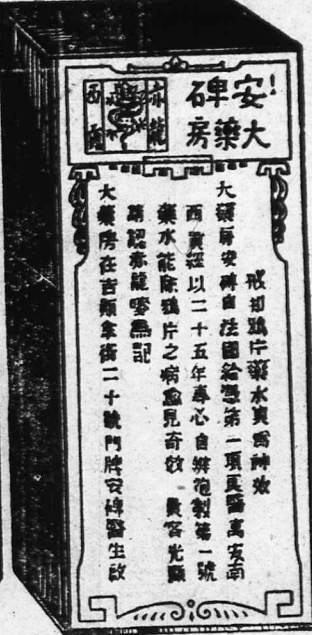 安碑
大藥房
赤龍
西貢
戒却鴉片藥水眞爲神效
大藥房安碑自法國給憑第一項良醫寓安南
西貢經以二十五年專心自辦泡製第一號
藥水能除鴉片之病愈見奇效 貴客光顧
請認赤龍嘜爲記
大藥房在吉顛拿街二十號門牌安碑醫生啟